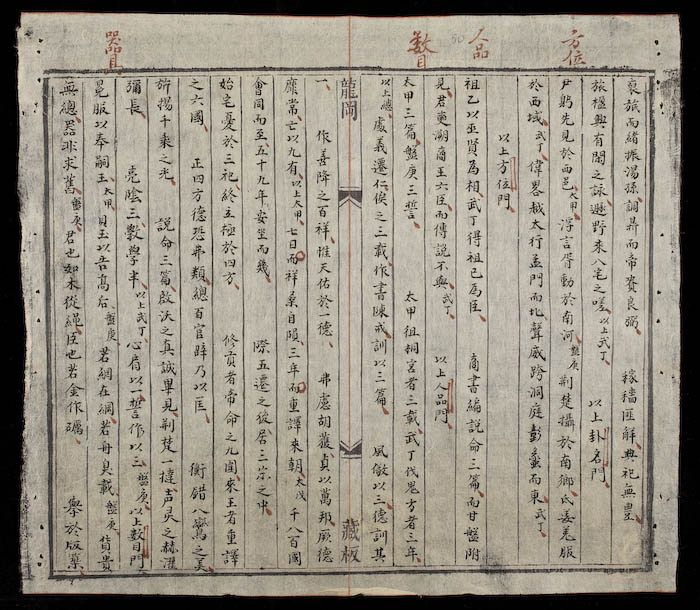 方位
人品
數目
器皿
50
裒旅而緒振湯孫調鼎而帝賚良弼 稼穡匪解典祀無豐
旅楹興有閑之詠遯野來八宅之嗟以上武丁 以上卦名門
尹躬先見於西邑太甲浮言胥動於南河盤庚荆楚攝於南鄉氐羌服
於西域武丁偉畧越太行孟門而北聲威跨洞庭彭蠡而東武丁
以上方位門
祖乙以巫賢為相武丁得祖已為臣 商書編説命三篇而甘盤附
見君奭溯商王六臣而傅說不與武丁 以上人品門
太甲三篇盤庚三誓 太甲徂桐宮者三載武丁伐鬼方者三年
以上總處義遷仁俟之三載作書陳戒訓以三篇 風儆以三德訓其
龍岡 藏板
一 作善降之百祥惟天佑於一德 弗慮胡獲貞以萬邦厥德
靡常亡以九有以上太甲七日而祥桑自隕三年而重譯來朝太戊千八百國
會同而至五十九年安坐而幾 際五遷之彼居三宗之中
始宅憂於三祀終立極於四方 修貢者帝命之九圍來王者重譯
之六國 正四方德恐弗類總百官辟乃以匡 衡錯八鸞之美
旂揚千乘之光 說命三篇啟沃之真誠畢見荆楚一撻声灵之赫濯
彌長 亮陰三數學半以上武丁心肩以一誓作以三盤庚以上數目門
冕服以奉嗣王太甲貝玉以告高后盤庚若網在綱若舟臭載盤庚貨貴
無總器非求舊盤庚君也如木從繩臣也若金作礪 舉於版築